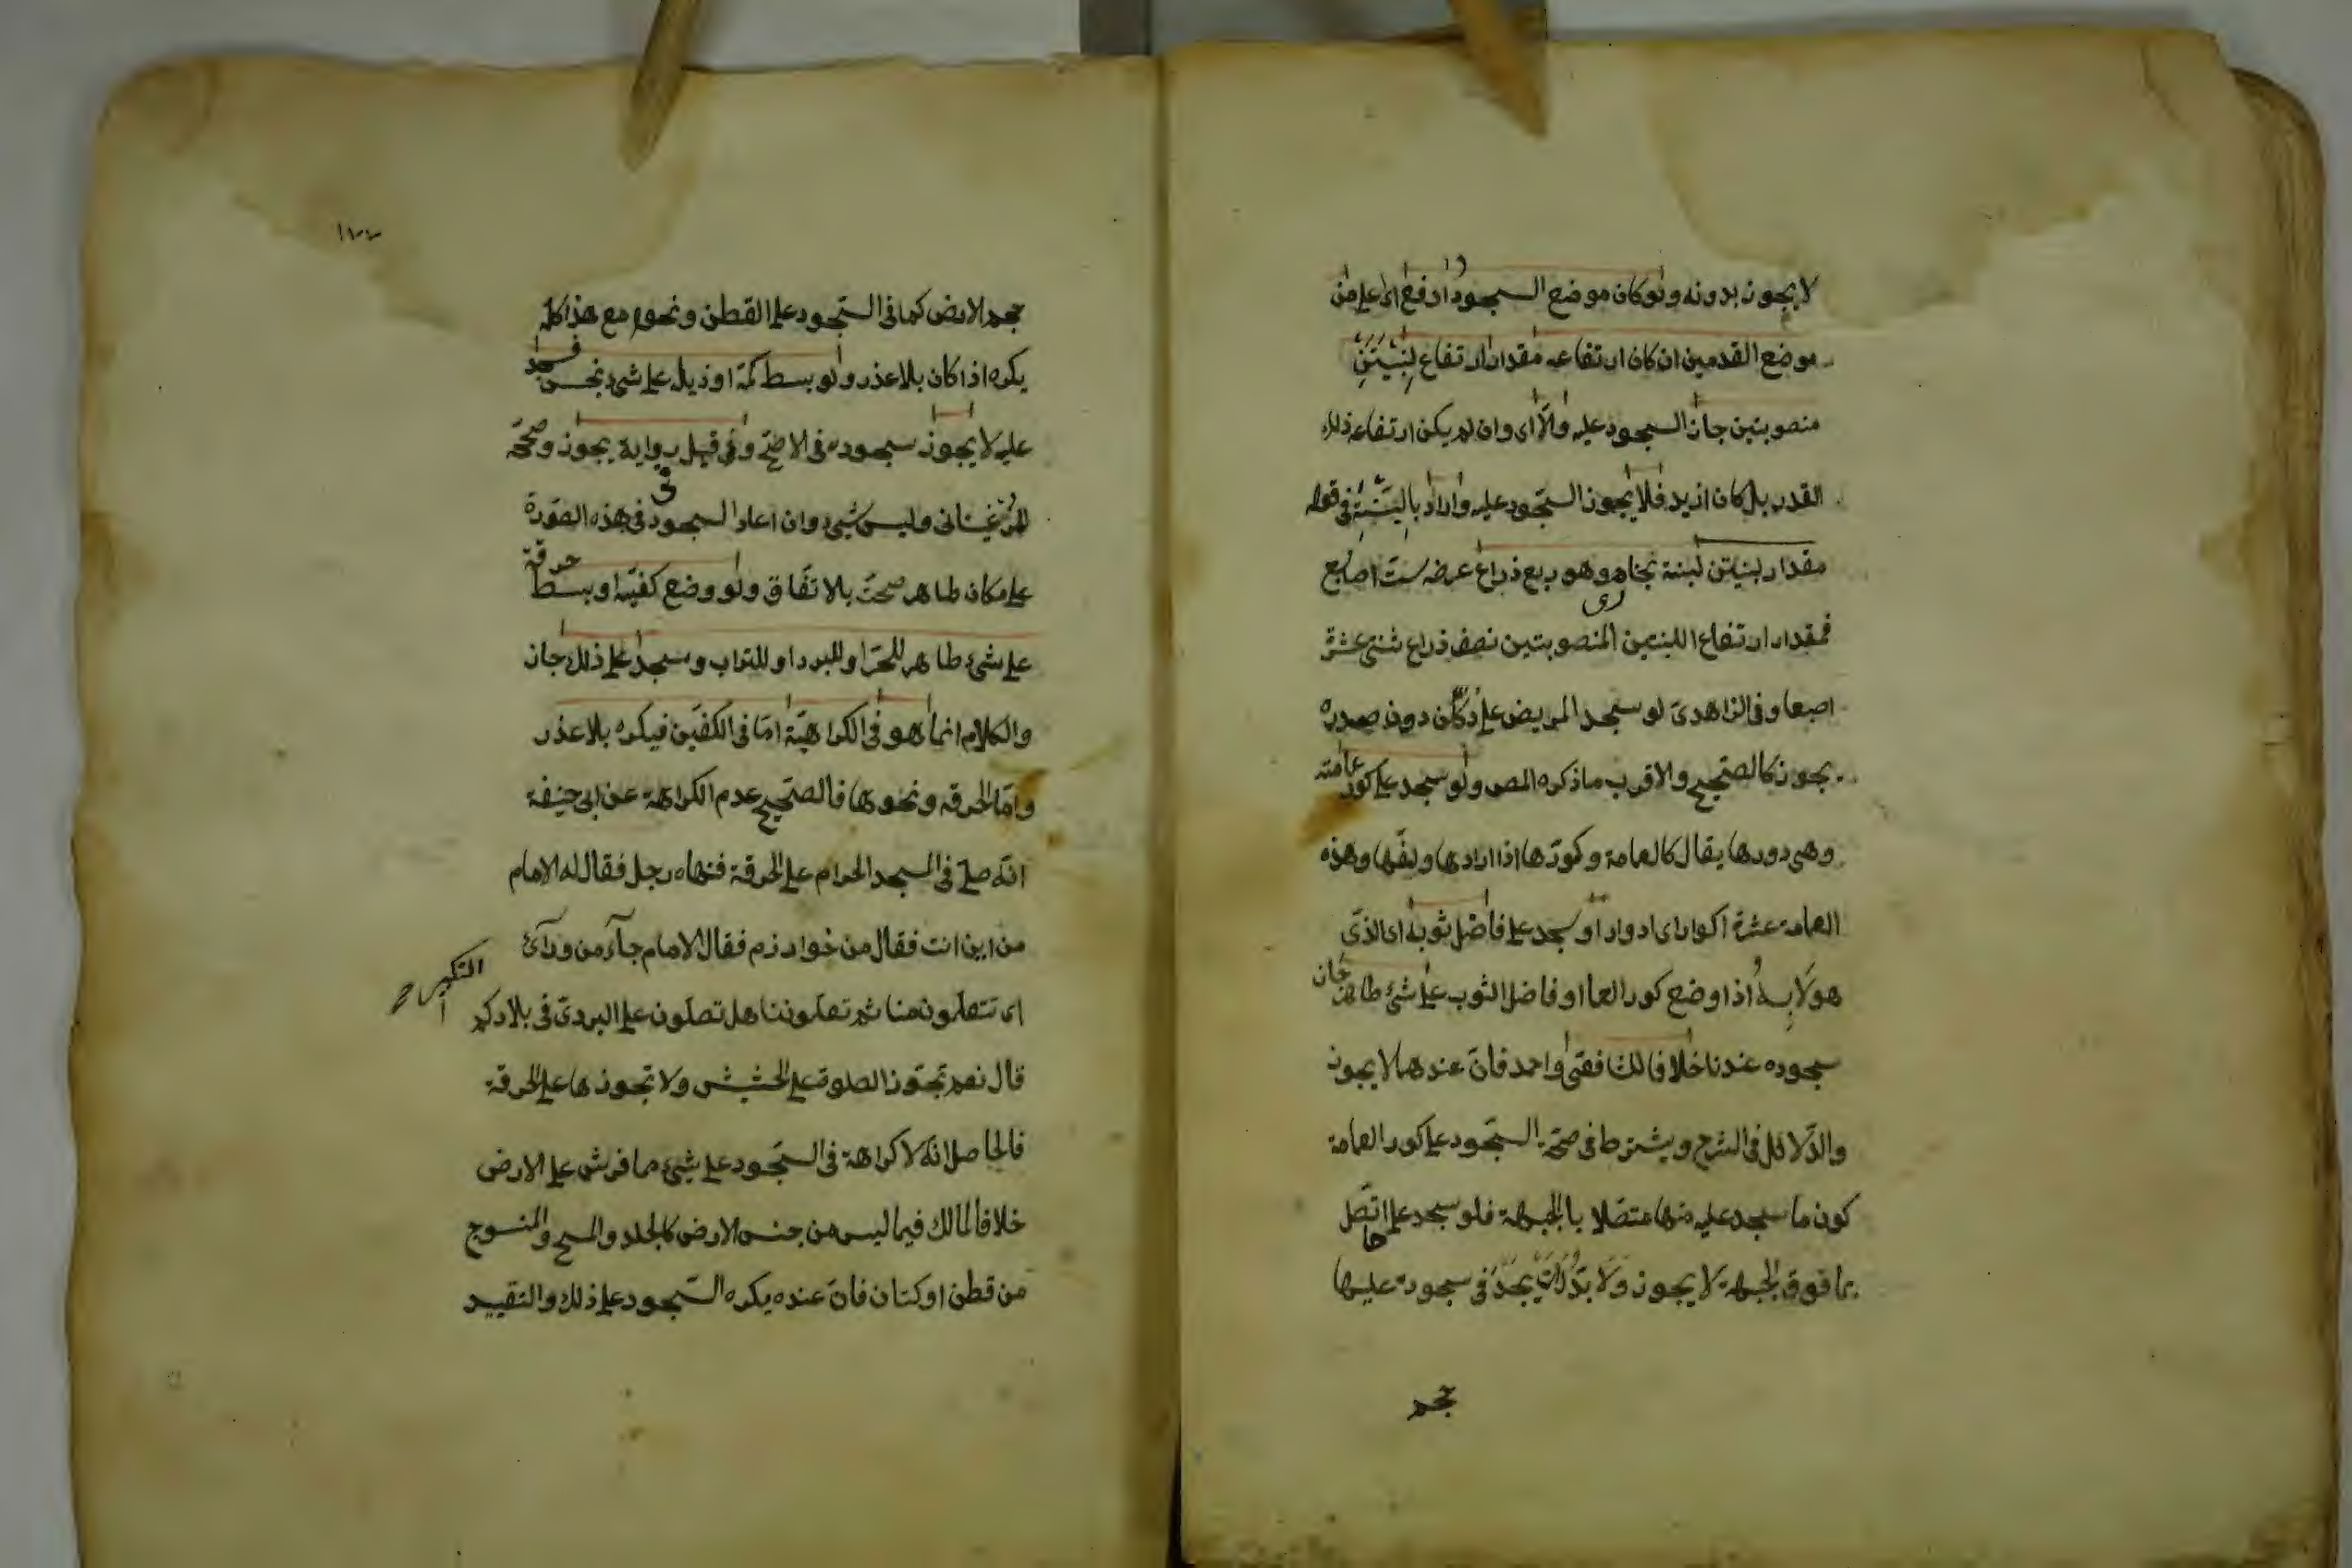 لا يجوز بدونه ولو كان موضع السجود ارفع اى اعلى من
موضع القدمين ان كان ارتفاعه مقدار ارتفاع لبنتين
منصوبتين جاز السجود عليه والا اى وان لم يكن ارتفاعه ذلك
القدر بل كان ازيد فلا يجوز السجود عليه واراد باللبنة فى قوله
مقدار لبنتين لبنة بخارى وهو ربع ذراع عرضه ست اصابع
فمقدار ارتفاع اللبنتين المنصوبتين نصف ذراع ثنتى عشرة
اصبعا وفى الزاهدى لو سجد المريض على دكان دون صدره
يجوز كالصحيح والاقرب ما ذكره المص ولو سجد على كور عمامته
وهى دورها يقال كار العمامة وكورها اذا ادارها ولفها وهذه
العمامة عشرة اكوار اى ادوار او سجد على فاضل ثوبه اى الذى
هو لابسه اذا وضع كور العما او فاضل الثوب على شئ طاهر جاز
سجوده عندنا خلافا للشافعى واحمد فان عندهما لا يجوز
والدلائل فى الشرح ويشترط فى صحة السجود على كور العمامة
كون ما سجد عليه منها متصلا بالجبهة فلو سجد على ما اتصل
بما فوق الجبهة لا يجوز ولا بد ان يجد فى سجوده عليها
حجم
١٧٧
حجم الارض كما فى السجود على القطن ونحوه مع هذا كله
يكره اذا كان بلا عذر ولو بسط كمه او ذيله على شئ نجس فسجد
عليه لا يجوز سجوده فى الاصح وفى قيل فى رواية يجوز وصححه
المرغينانى وليس بشئ وان اعاد السجود فى هذه الصورة
على مكان طاهر صحت بالاتفاق ولو وضع كفيه او بسط خرقة
على شئ طاهر للحر او للبرد او للتراب وسجد على ذلك جاز
والكلام انما هو فى الكراهية اما فى الكفين فيكره بلا عذر
واما الخرقة ونحوها فالصحيح عدم الكراهة عن ابى حنيفة
انه صلى فى المسجد الحرام على الخرقة فنهاه رجل فقال له الامام
من اين انت فقال من خوارزم فقال الامام جاء من ورآئ
التكبير
اى تتعلمون منا ثم تعلموننا هل تصلون على البردى فى بلادكم
قال نعم تجوز الصلوة على الحشيش ولا تجوزها على الخرقة
فالحاصل انه لا كراهة فى السجود على شئ مما فرش على الارض
خلافا لمالك فيما ليس من جنس الارض كالجلد والمسح والمنسوج
من قطن او كتان فان عنده يكره السجود على ذلك والتقييد